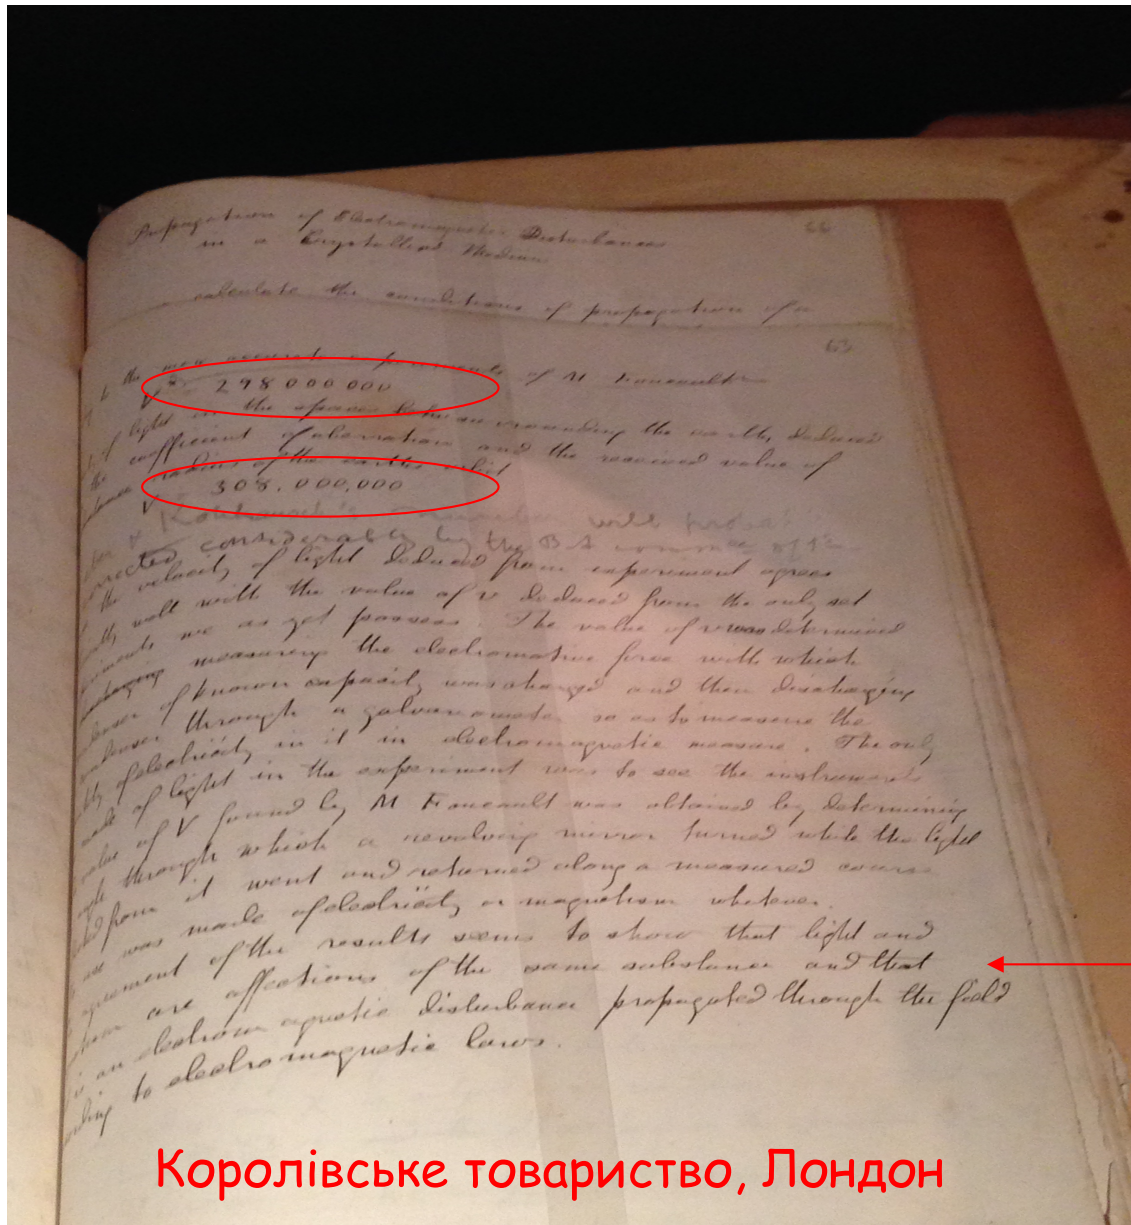 Propagation of Electromagnetic Disturbances
in a Crystallized Medium
66
calculate the conditions of propagation of a
63
the more accurate experiments of M Foucault
V = 298000000
of light in the space surrounding the earth, deduced
the coefficient of aberration and the received value of
radius of the earth's orbit
V 308.000,000
Kohlrausch's number will
corrected considerably by the B A
the velocity of light deduced from experiment agrees
well with the value of v deduced from the only set
we as yet possess. The value of v was determined
measuring the electromotive force with which
of known capacity was charged and then discharging
through a galvanometer so as to measure the
of electricity in it in electromagnetic measure. The only
made of light in the experiment was to see the instruments
value of V found by M Foucault was obtained by determining
through which a revolving mirror turned while the light
from it went and returned along a measured course
use was made of electricity or magnetism whatever.
agreement of the results seems to show that light and
are affections of the same substance and that
is an electromagnetic disturbance propagated through the field
to electromagnetic laws.
Королівське товариство, Лондон